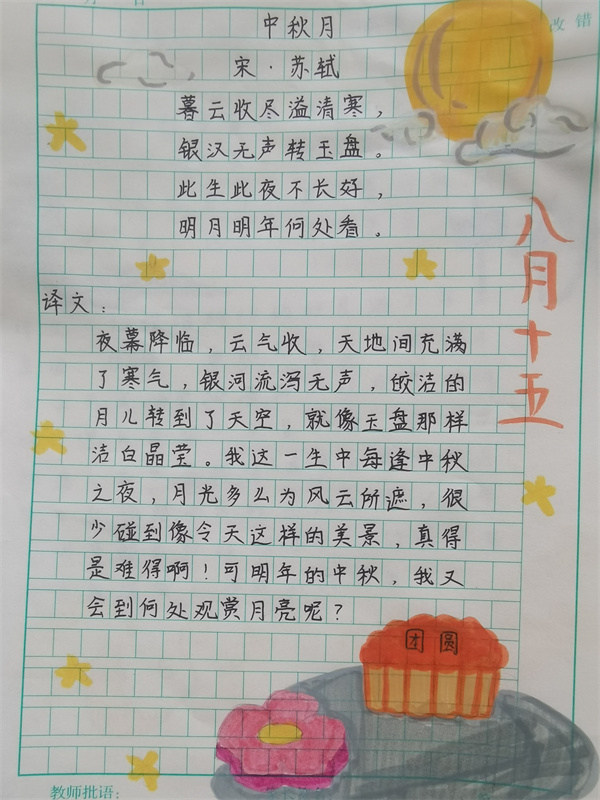 改错
中秋月
宋·苏轼
暮云收尽溢清寒，
银汉无声转玉盘。
此生此夜不长好，
明月明年何处看。
八月十五
译文：
夜幕降临，云气收，天地间充满
了寒气，银河流泻无声，皎洁的
月儿转到了天空，就像玉盘那样
洁白晶莹。我这一生中每逢中秋
之夜，月光多么为风云所遮，很
少碰到像今天这样的美景，真得
是难得啊！可明年的中秋，我又
会到何处观赏月亮呢？
团圆
教师批语：